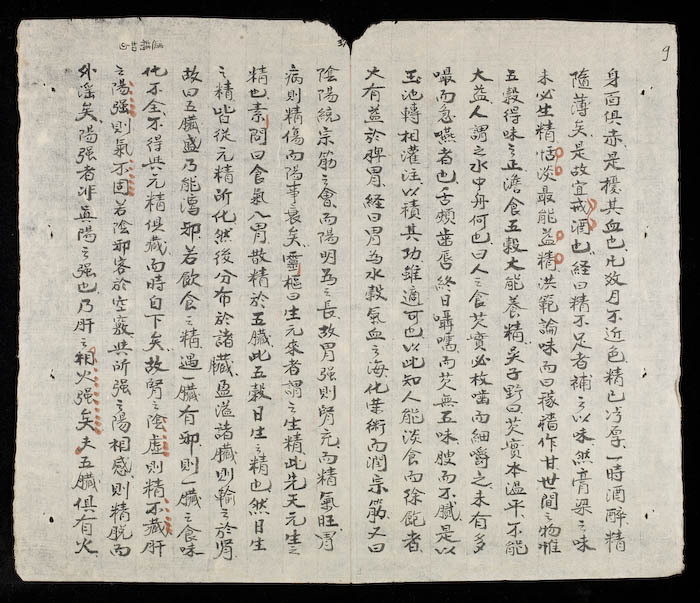 9
身面俱赤是擾其血也凡數月不近色精已冷厚一時酒醉精
隨薄矣是故宜戒酒也經曰精不足者補之以味然膏粱之味
未必生精恬淡最能益精洪範論味而曰稼穡作甘世間之物惟
五穀得味之正澹食五穀大能養精吳子野曰芡實本溫平不能
大益人謂之水中丹何也曰人之食芡實必枚嚙而細嚼之未有多
嘬而急嚥者也舌頰齒唇終日囁嚅而芡無五味腴而不膩是以
玉池轉相灌注以積其功雖適可也以此知人能淡食而徐飽者
大有益於脾胃經曰胃為水穀氣血之海化榮衛而潤宗筋又曰
陰陽總宗筋之會而陽明為之長故胃強則腎充而精氣旺胃
病則精傷而陽事衰矣靈樞曰生元來者謂之生精此先天元生之
精也素問曰食氣入胃散精於五臟此五穀日生之精也然日生
之精皆從元精所化然後分布於諸臟盈溢諸臟則輸之於腎
故曰五臟盛乃能瀉邪若飲食之精遇一臟有邪則一臟之食味
化不全不得與元精俱藏而時自下矣故腎之陰虛則精不藏肝
之陽強則氣不固若陰邪客於空竅與所強之陽相感則精脫而
外淫矣陽強者非真陽之強也乃肝之相火強矣夫五臟俱有火